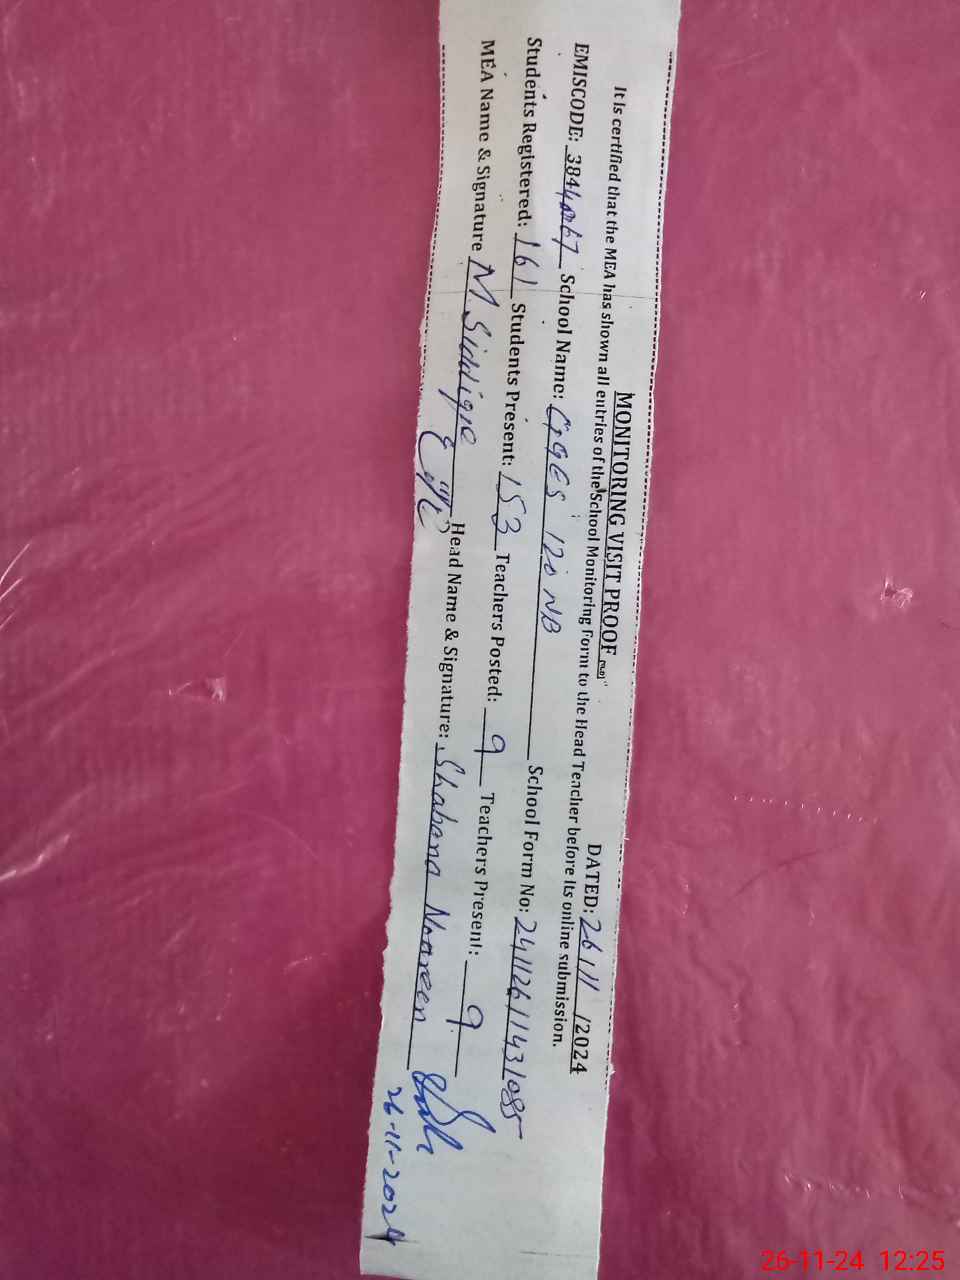 MONITORING VISIT PROOF
DATED: 26/11/2024
It is certified that the MEA has shown all entries of the School Monitoring Form to the Head Teacher before its online submission.
EMISCODE: School Name: GGES 120 NB School Form No: 24112611431085
Students Registered: 161 Students Present: 153 Teachers Posted: 9 Teachers Present: 9
MEA Name & Signature M Siddique Head Name & Signature: Shabana Noreen
26-11-2024
26-11-24 12:25